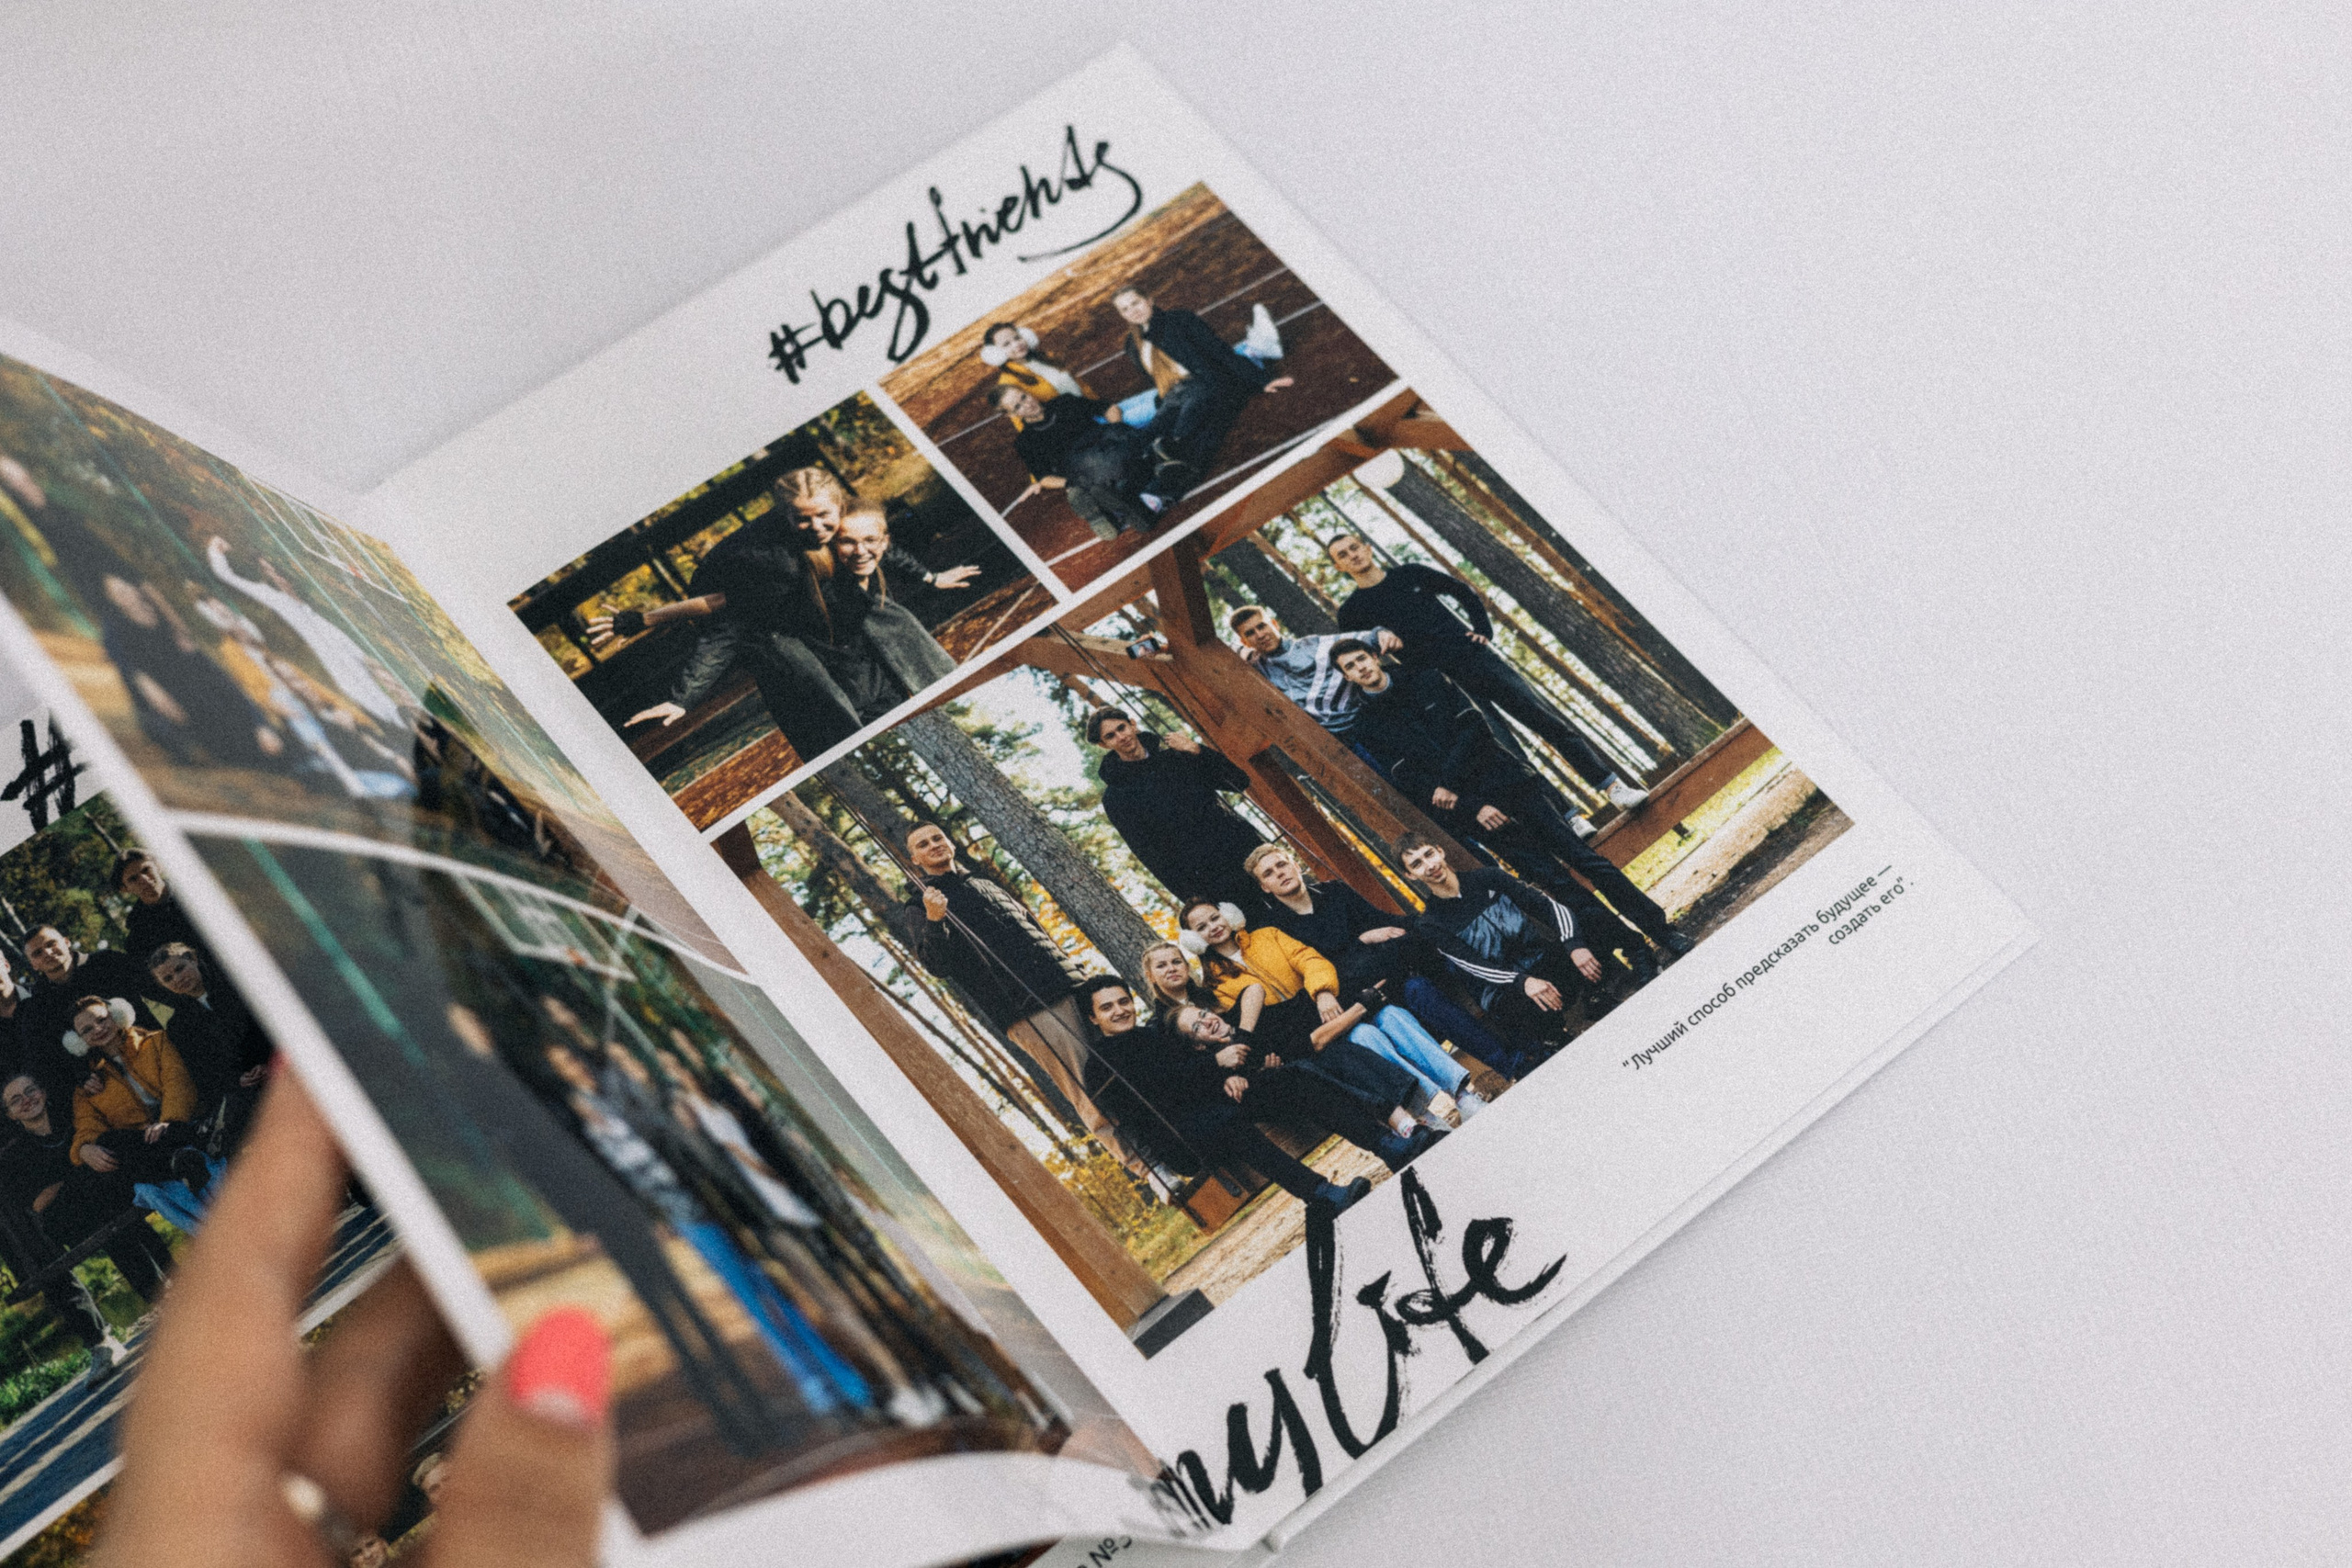 #
#bestfriends
"Лучший способ предсказать будущее —
создать его".
my life
№3